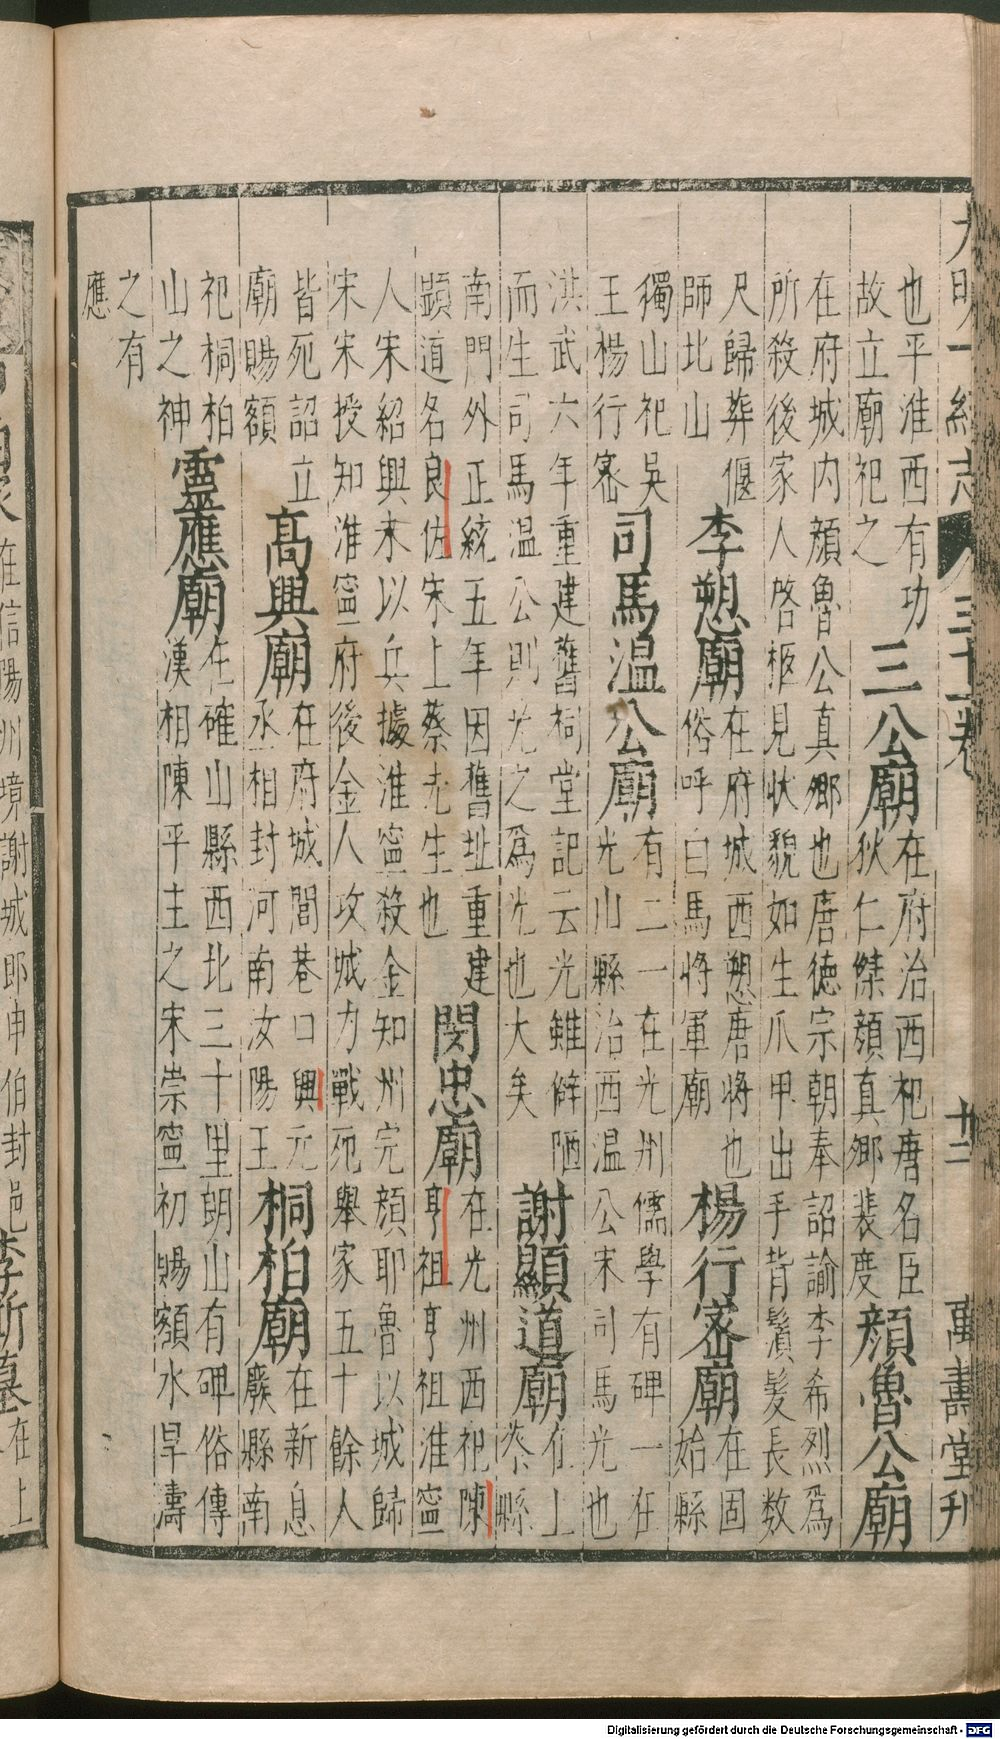 大明一統志 卷三十一卷 十二 萬壽堂刋
也平淮西有功
故立廟祀之
三公廟
在府治西祀唐名臣
狄仁傑顔真卿裴度
顔魯公廟
在府城内顔魯公真卿也唐德宗朝奉詔諭李希烈爲
所殺後家人啓柩見狀貌如生爪甲出手背鬚髮長数
尺歸葬偃
師北山
李愬廟
在府城西愬唐將也
俗呼白馬將軍廟
楊行宻廟
在固
始縣
獨山祀吴
王楊行宻
司馬温公廟
有二一在光州儒學有碑一在
光山縣治西温公宋司馬光也
洪武六年重建舊祠堂記云光雖僻陋
而生司馬温公則光之爲光也大矣
謝顯道廟
在上
蔡縣
南門外正統五年因舊址重建
顯道名良佐宋上蔡先生也
閔忠廟
在光州西祀陳
亨祖亨祖淮寧
人宋紹興末以兵據淮寧殺金知州完顔耶魯以城歸
宋宋授知淮寧府後金人攻城力戰死舉家五十餘人
皆死詔立
廟賜額
髙興廟
在府城閭巷口興元
丞相封河南汝陽王
桐柏廟
在新息
廢縣南
祀桐柏
山之神
靈應廟
在確山縣西北三十里朗山有碑俗傳
漢相陳平主之宋崇寧初賜額水旱濤
之有
應
在信陽州境謝城即申伯封邑
李斯墓
在上
Digitalisierung gefördert durch die Deutsche Forschungsgemeinschaft - DFG